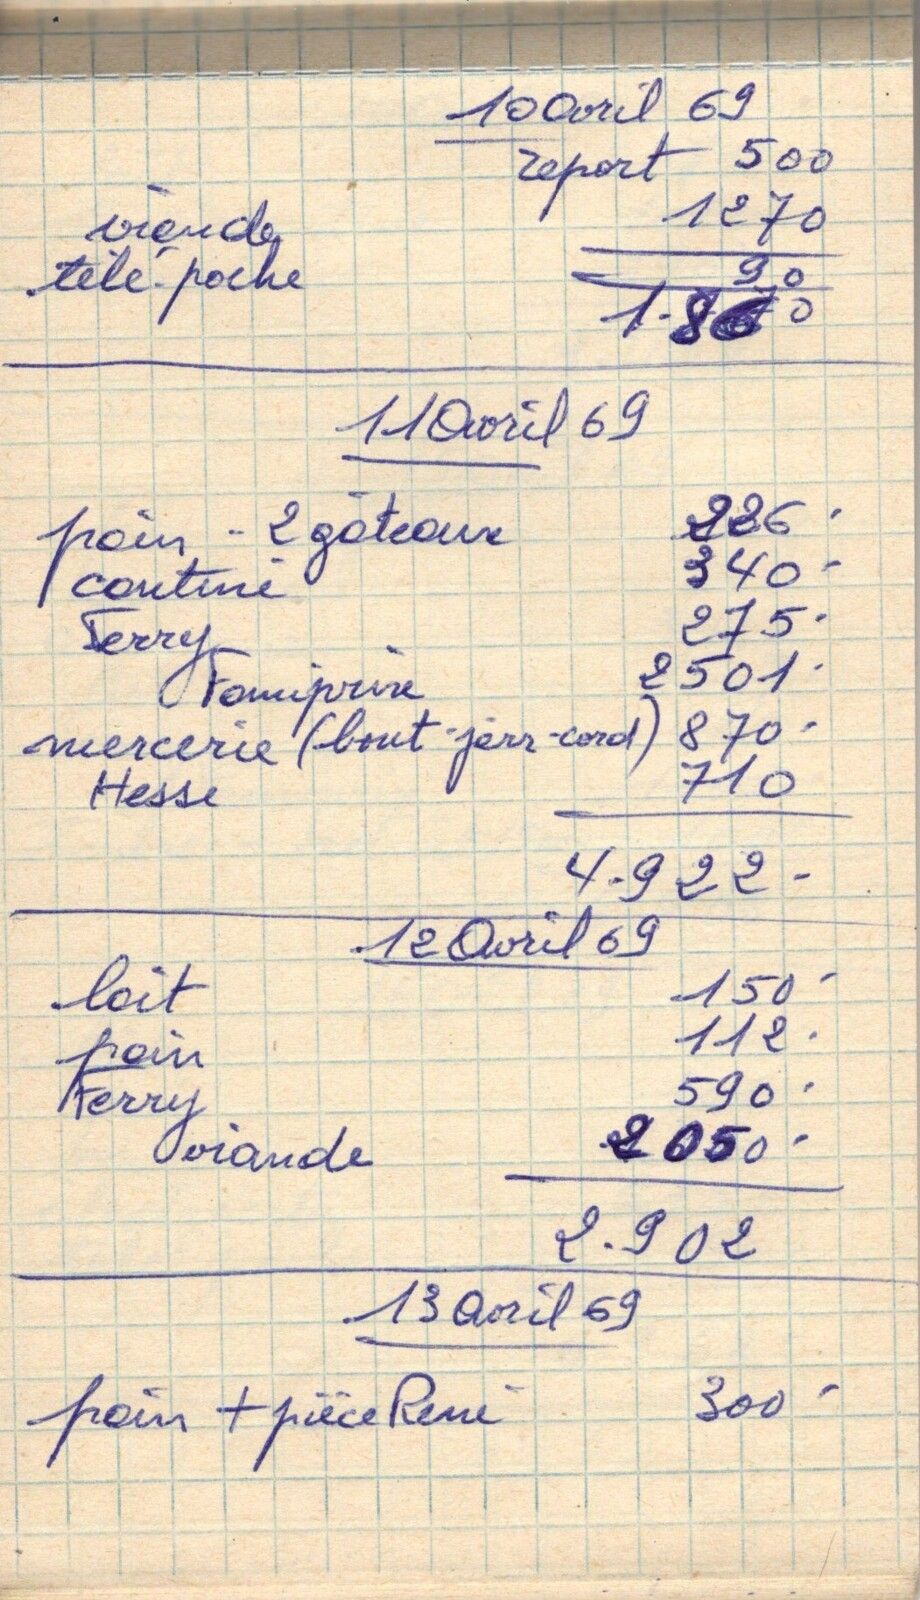 10 Avril 69
report 500
viande 1270
télé-poche 90
1.860
11 Avril 69
pain - 2 gâteaux 226
cantine 340
Ferry 275
Famiprix 2501
mercerie (bout-jerr-cord) 870
Hesse 710
4.922
12 Avril 69
lait 150
pain 112
Ferry 590
viande 2050
2.902
13 Avril 69
pain + pièce René 300